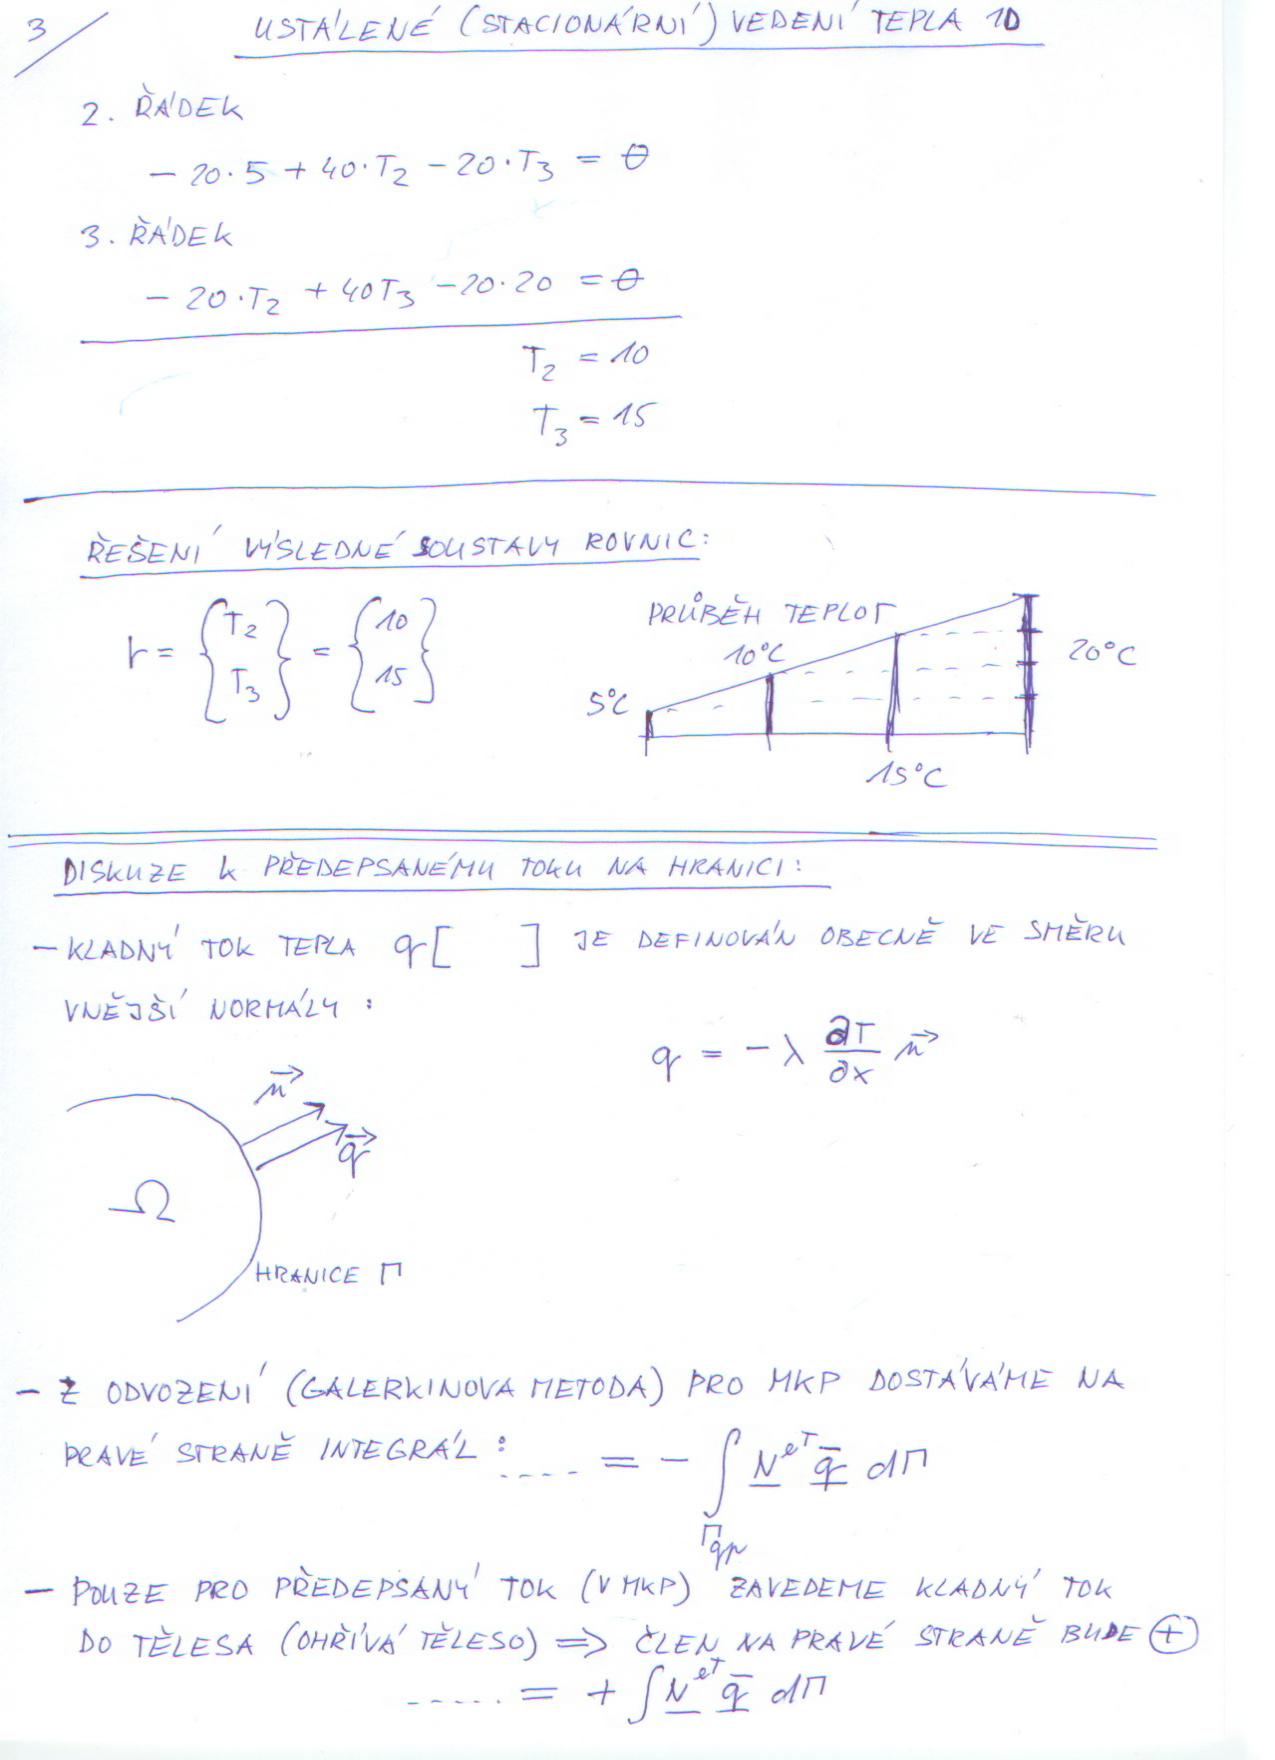 3
USTÁLENÉ (STACIONÁRNÍ) VEDENÍ TEPLA 1D
2. ŘÁDEK
- 20·5 + 40·T₂ - 20·T₃ = 0
3. ŘÁDEK
- 20·T₂ + 40T₃ - 20·20 = 0
T₂ = 10
T₃ = 15
ŘEŠENÍ VÝSLEDNÉ SOUSTAVY ROVNIC:
r = {T₂ T₃} = {10 15}
PRŮBĚH TEPLOT
5°C
10°C
15°C
20°C
DISKUZE K PŘEDEPSANÉMU TOKU NA HRANICI:
- KLADNÝ TOK TEPLA q [ ] JE DEFINOVÁN OBECNĚ VE SMĚRU
VNĚJŠÍ NORMÁLY:
q = - λ ∂T/∂x n⃗
n⃗
q⃗
Ω
HRANICE Γ
- Z ODVOZENÍ (GALERKINOVA METODA) PRO MKP DOSTÁVÁME NA
PRAVÉ STRANĚ INTEGRÁL: ..... = - ∫ N^eT q̄ dΓ
Γqp
- POUZE PRO PŘEDEPSANÝ TOK (V MKP) ZAVEDEME KLADNÝ TOK
DO TĚLESA (OHŘÍVÁ TĚLESO) => ČLEN NA PRAVÉ STRANĚ BUDE ⊕
..... = + ∫ N^eT q̄ dΓ